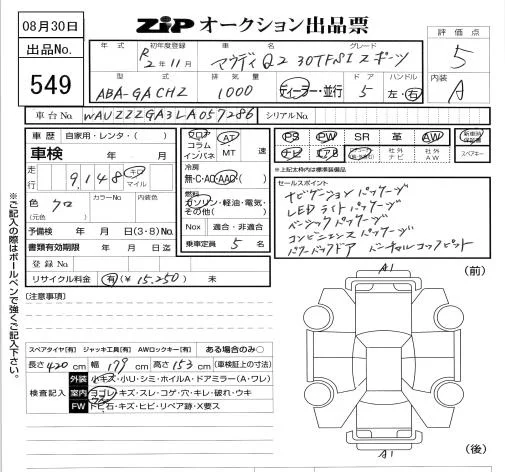 08月30日
ZiP オークション出品票
出品No.
549
年式 初年度登録 車名 グレード
R 2年11月 アウディQ2 30TFSI スポーツ
型式 排気量 ドア ハンドル
ABA-GACHZ 1000 ディーラー・並行 5 左・右
評価点
5
内装
A
車台No. WAUZZZGA3LA057286 シリアルNo.
車歴 自家用・レンタ・( )
車検 年 月
走行 9,148 キロ マイル
色 クロ (元色) カラーNo. 内装色
予備検 年 月 日(3・8)No.
書類有効期限 年 月 日迄
登録No.
リサイクル料金 有(¥ 15,250 ) 未
フロア コラム インパネ AT・MT 速
冷房 無・C・AC・AAC( )
燃料 ガソリン・軽油・電気・その他( )
Nox 適合・非適合
乗車定員 5 名
PS PW SR 革 AW
ナビ エアB 社外ナビ 社外AW
新車時保証書
スペアキー
※上記太枠内は標準装備品
セールスポイント
ナビゲーションパッケージ
LEDライトパッケージ
ベーシックパッケージ
コンビニエンスパッケージ
パワーバックドア バーチャルコックピット
[注意事項]
スペアタイヤ[有] ジャッキ工具[有] AWロックキー[有] ある場合のみ○
長さ 420 cm 幅 179 cm 高さ 153 cm (車検証上の寸法)
検査記入
外装 小キズ・小U・シミ・ホイルA・ドアミラー(A・ワレ)
室内 ヨゴレ・キズ・スレ・コゲ・穴・キレ・破れ・ウキ
FW トビ石・キズ・ヒビ・リペア跡・X要ス
A1 (前)
A1 (後)
※ご記入の際はボールペンで強くご記入下さい。